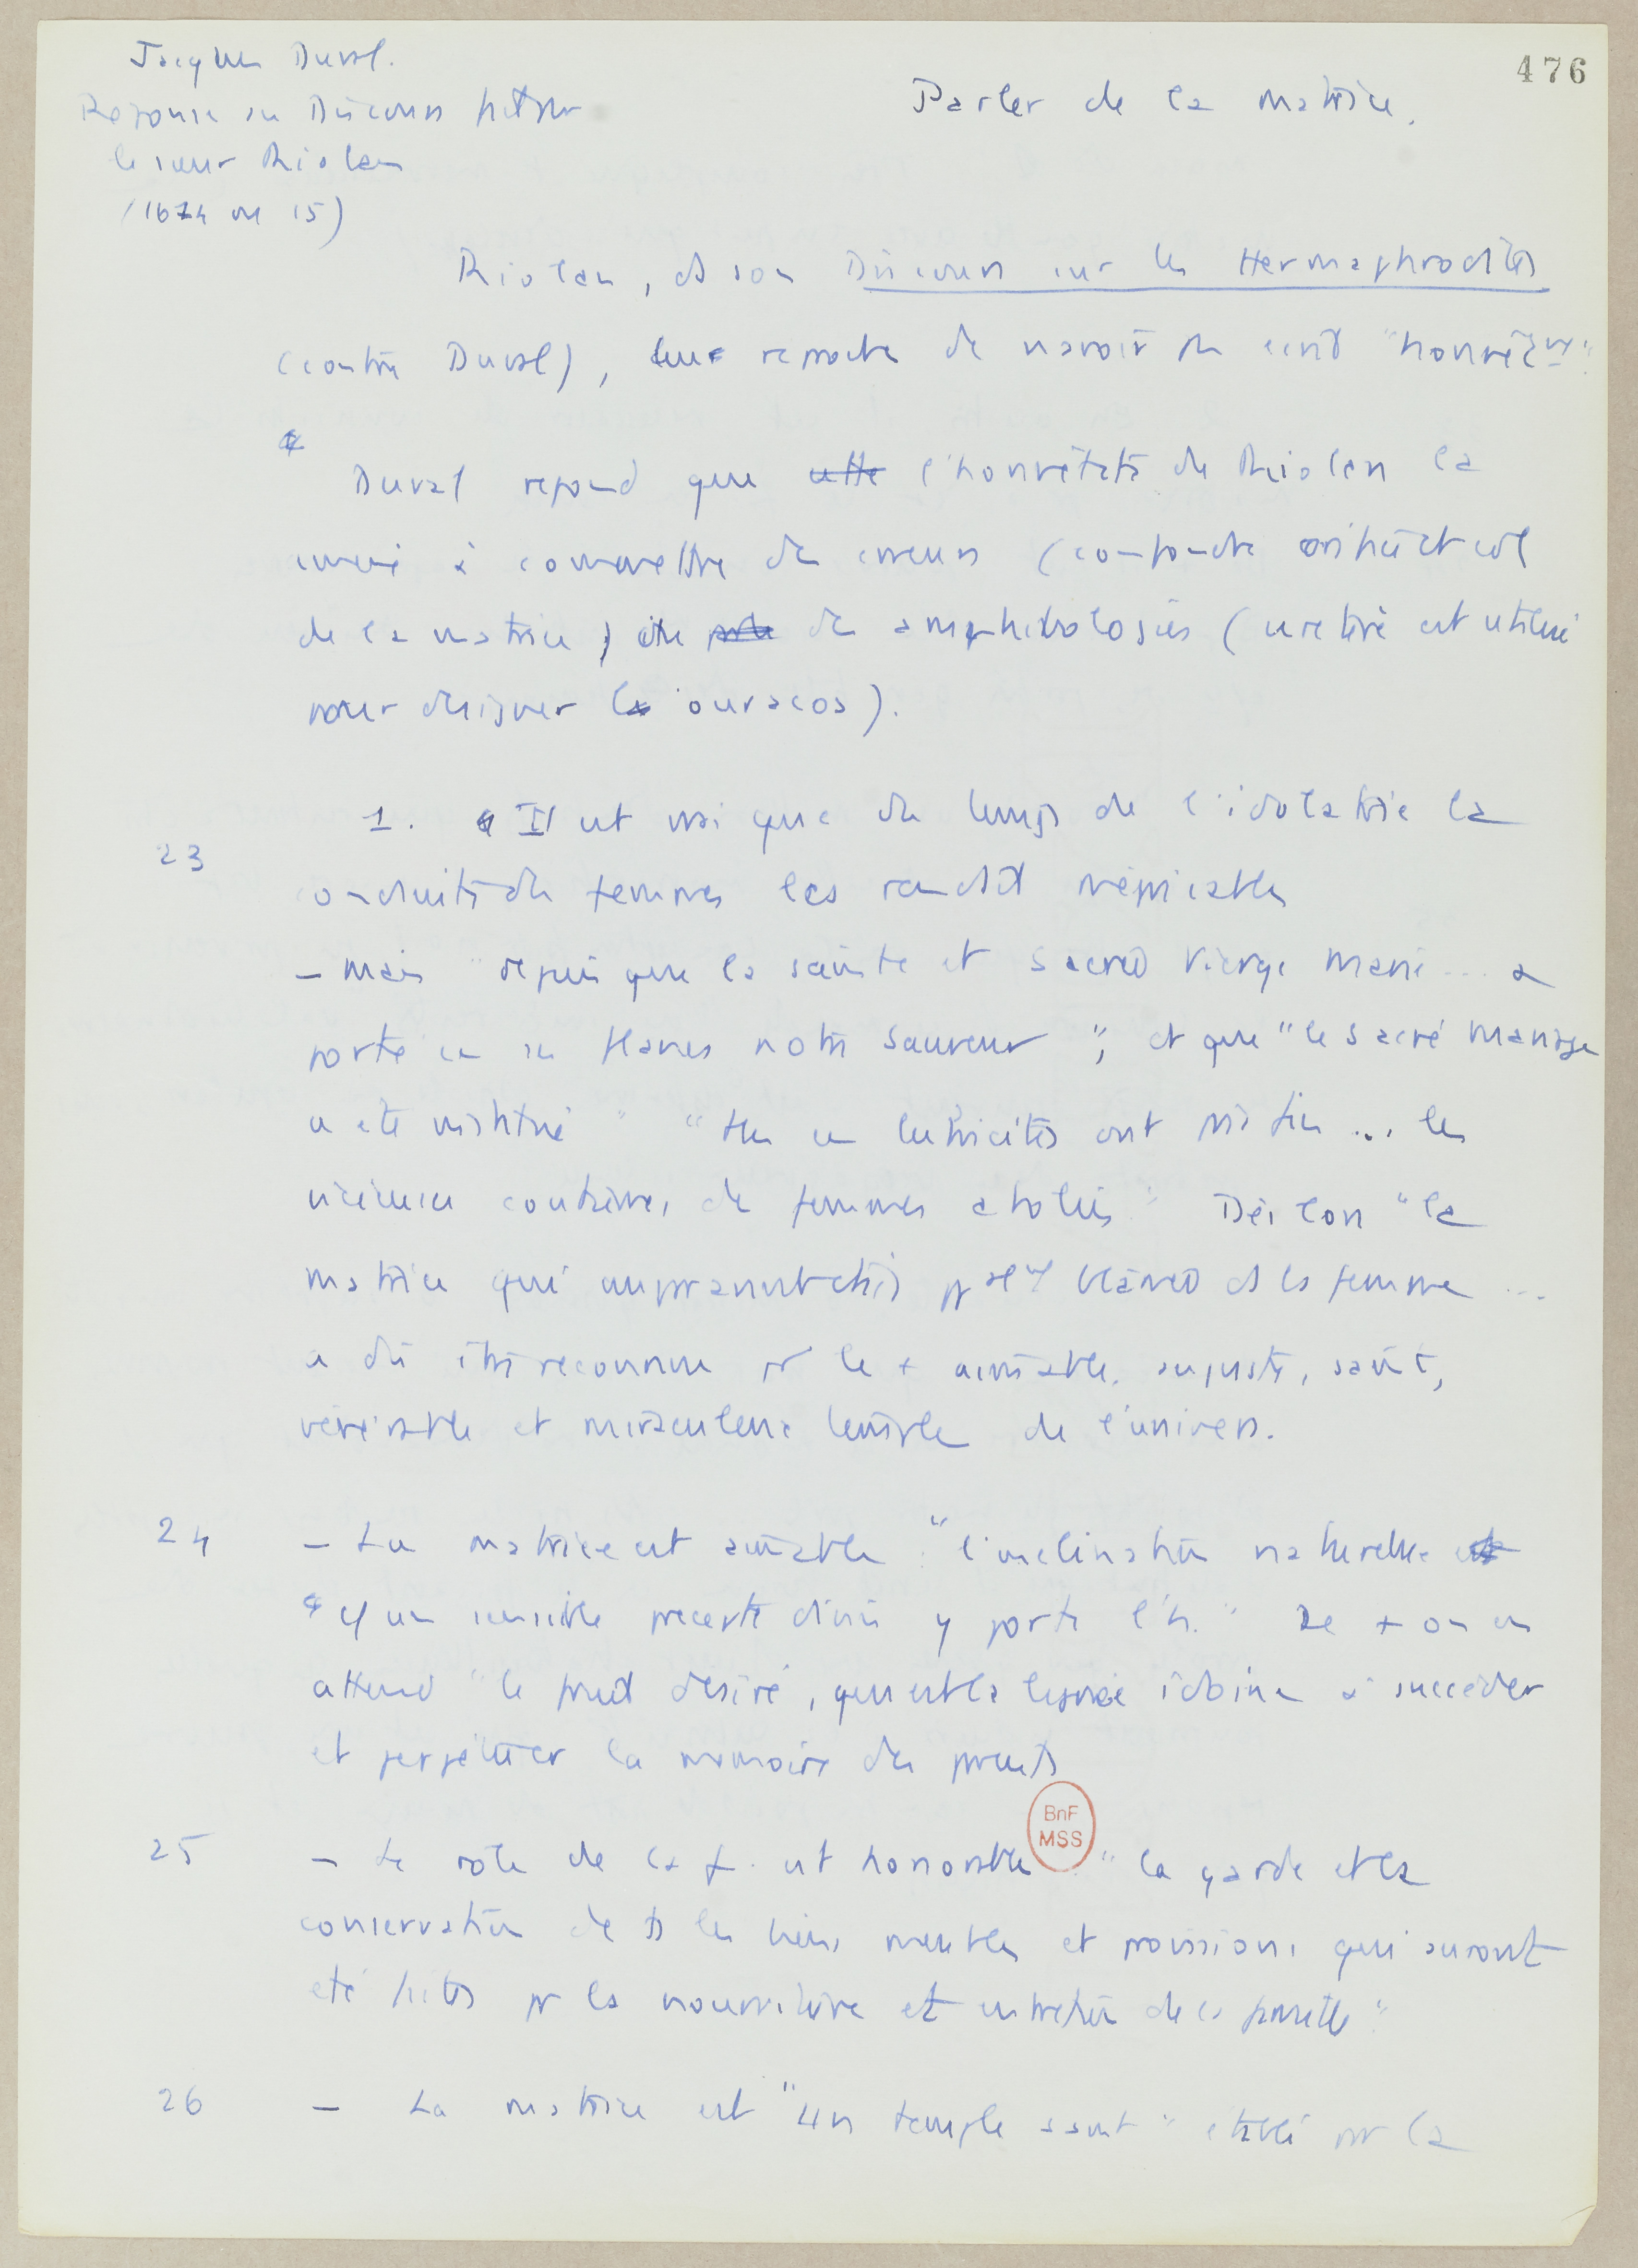 Jacques Duval.
Réponse au Discours fait par
le sieur Riolan
(1614 ou 15)
476
Parler de la matrice.
Riolan, ds son Discours sur les Hermaphrodites
(contre Duval), lui reproche de n'avoir pas écrit "honnêtemt".
Duval répond que cette l'honnêteté de Riolan l'a
amené à commettre des erreurs (confondre orifice et col
de la matrice), des amphibologies (uretère est utilisé
pour désigner l'ouracos).
23
1. Il est vrai que du temps de l'idolatrie la
conduite des femmes les rendit méprisables
- mais "depuis que la sainte et sacrée Vierge Marie ... a
porté en ses flancs notre Sauveur", et que "le sacré mariage
a été institué" "ttes ces lubricités ont pris fin ... les
vicieuses coutumes de femmes abolies" Dès lors "la
matrice qui auparavant était ppalemt blâmée ds la femme ...
a dû être reconnue pr le + aimable, auguste, saint,
vénérable et miraculeux temple de l'univers.
24
- La matrice est aimable : "l'inclination naturelle
qd un sensible precepte divin y porte l'h." De + on en
attend "le fruit désiré, qui est la lignée idoine à succéder
et perpétuer la mémoire des parents
25
BnF
MSS
- Le rôle de la f. est honorable : "la garde et la
conservation de ts les biens meubles et provisions qui auront
été faites pr la nourriture et entretien de la famille".
26
- La matrice est "un temple saint" établi par la